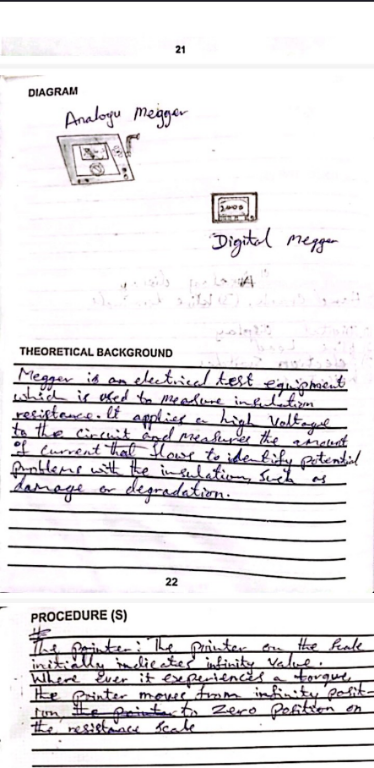 21
DIAGRAM
Analogu Megger
Digital Megger
THEORETICAL BACKGROUND
Megger is an electrical test equipment
which is used to measure insulation
resistance. It applies a high Voltage
to the circuit and measures the amount
of current that flows to identify potential
problems with the insulation, such as
damage or degradation.
22
PROCEDURE (S)
The pointer: The pointer on the Scale
initially indicates infinity value.
Where ever it experiences a torque,
the pointer moves from infinity posit-
ion, the pointer to Zero position on
the resistance scale